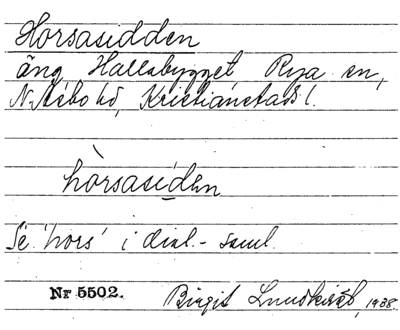 Horsasidden
äng Hallabygget Rya sn,
N. Åsbo hd, Kristianstads l.
hòrsasíden
Se 'hors' i dial.-saml.
Nr 5502. Birgit Lundkvist, 1938.